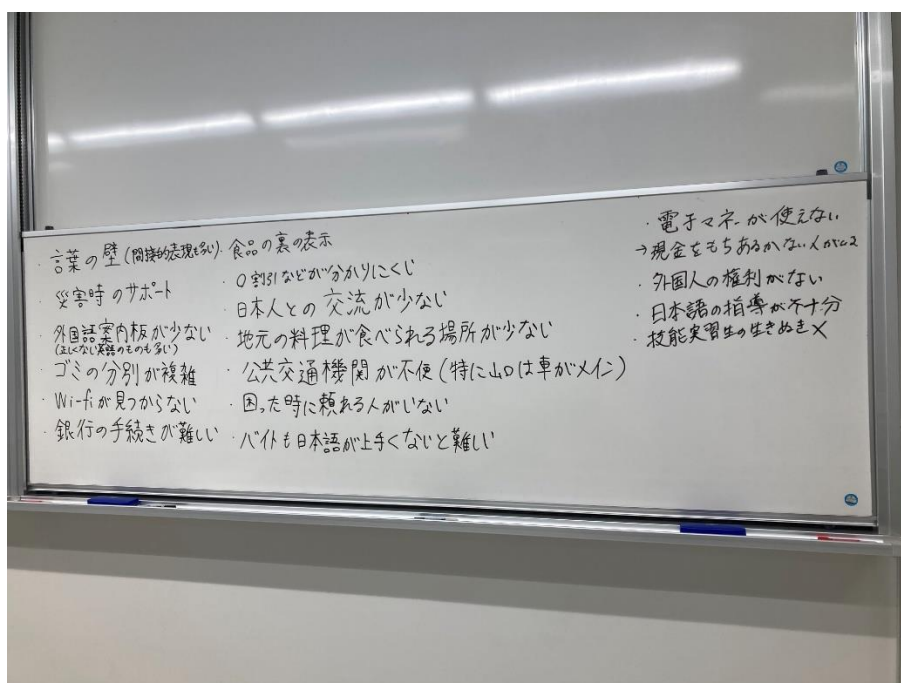 ・言葉の壁(間接的表現も多い)
・災害時のサポート
・外国語案内板が少ない
(正しくない英語のものも多い)
・ゴミの分別が複雑
・Wi-fiが見つからない
・銀行の手続きが難しい
・食品の裏の表示
・〇割引などが分かりにくい
・日本人との交流が少ない
・地元の料理が食べられる場所が少ない
・公共交通機関が不便(特に山口は車がメイン)
・困った時に頼れる人がいない
・バイトも日本語が上手くないと難しい
・電子マネーが使えない
→現金をもちあるかない人が
・外国人の権利がない
・日本語の指導が不十分
・技能実習生の生きぬき×